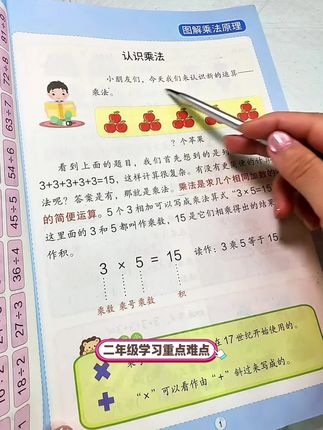 图解乘法原理
认识乘法
小朋友们，今天我们来认识新的运算——
乘法。
？个苹果
看到上面的题目，我们首先想到的是
3+3+3+3+3=15，这样计算很复杂。有没有更简便的计
法呢？答案是有，那就是乘法。乘法是求几个相同加数的
的简便运算。5个3相加可以写成乘法算式“3×5=15
这里面的3和5都叫作乘数，15是它们相乘得出的结果
作积。
3 × 5 = 15 读作：3乘5等于15
乘数 乘号 乘数 积
在17世纪开始使用的。
二年级学习重点难点
“×”可以看作由“+”斜过来写成的。
1
72÷8
63÷7
54÷6
45÷5
36÷4
27÷3
18÷2